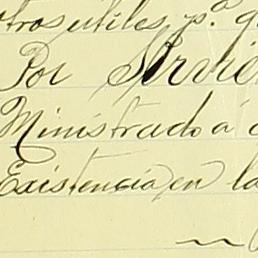 otros utiles, p.ª q
Por Servi
Ministrado á
Existencia en la